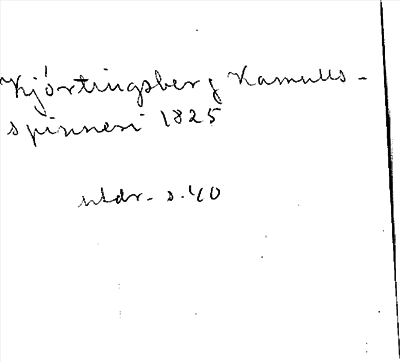 Kjörtingsberg Kamulls-
spinneri 1825
utdr. s. 40